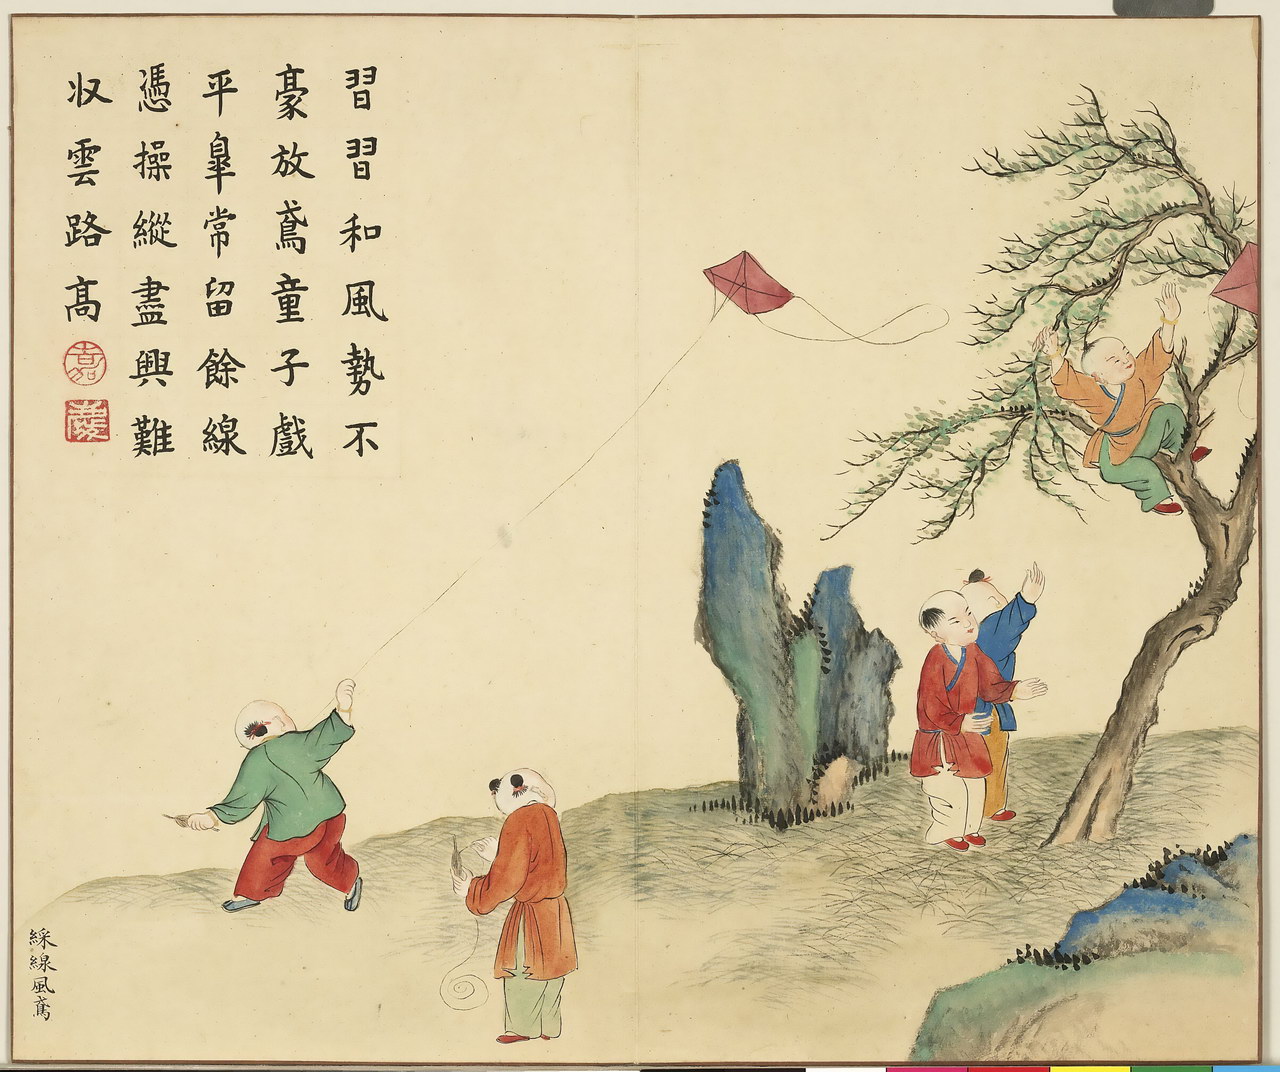 習習和風勢不
豪放鳶童子戲
平臯常留餘線
憑操縱盡興難
収雲路高
嘉
慶
綵線風鳶